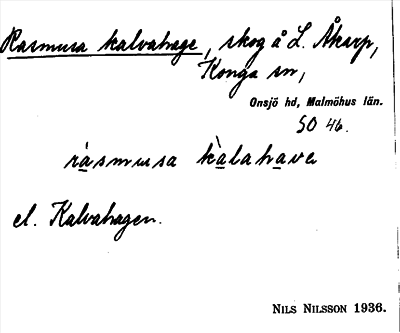 Rasmusa kalvahage, skog å L. Åkarp,
Konga sn,
Onsjö hd, Malmöhus län.
SO 46.
ràsmusa kàlahava
el. Kalvahagen.
NILS NILSSON 1936.